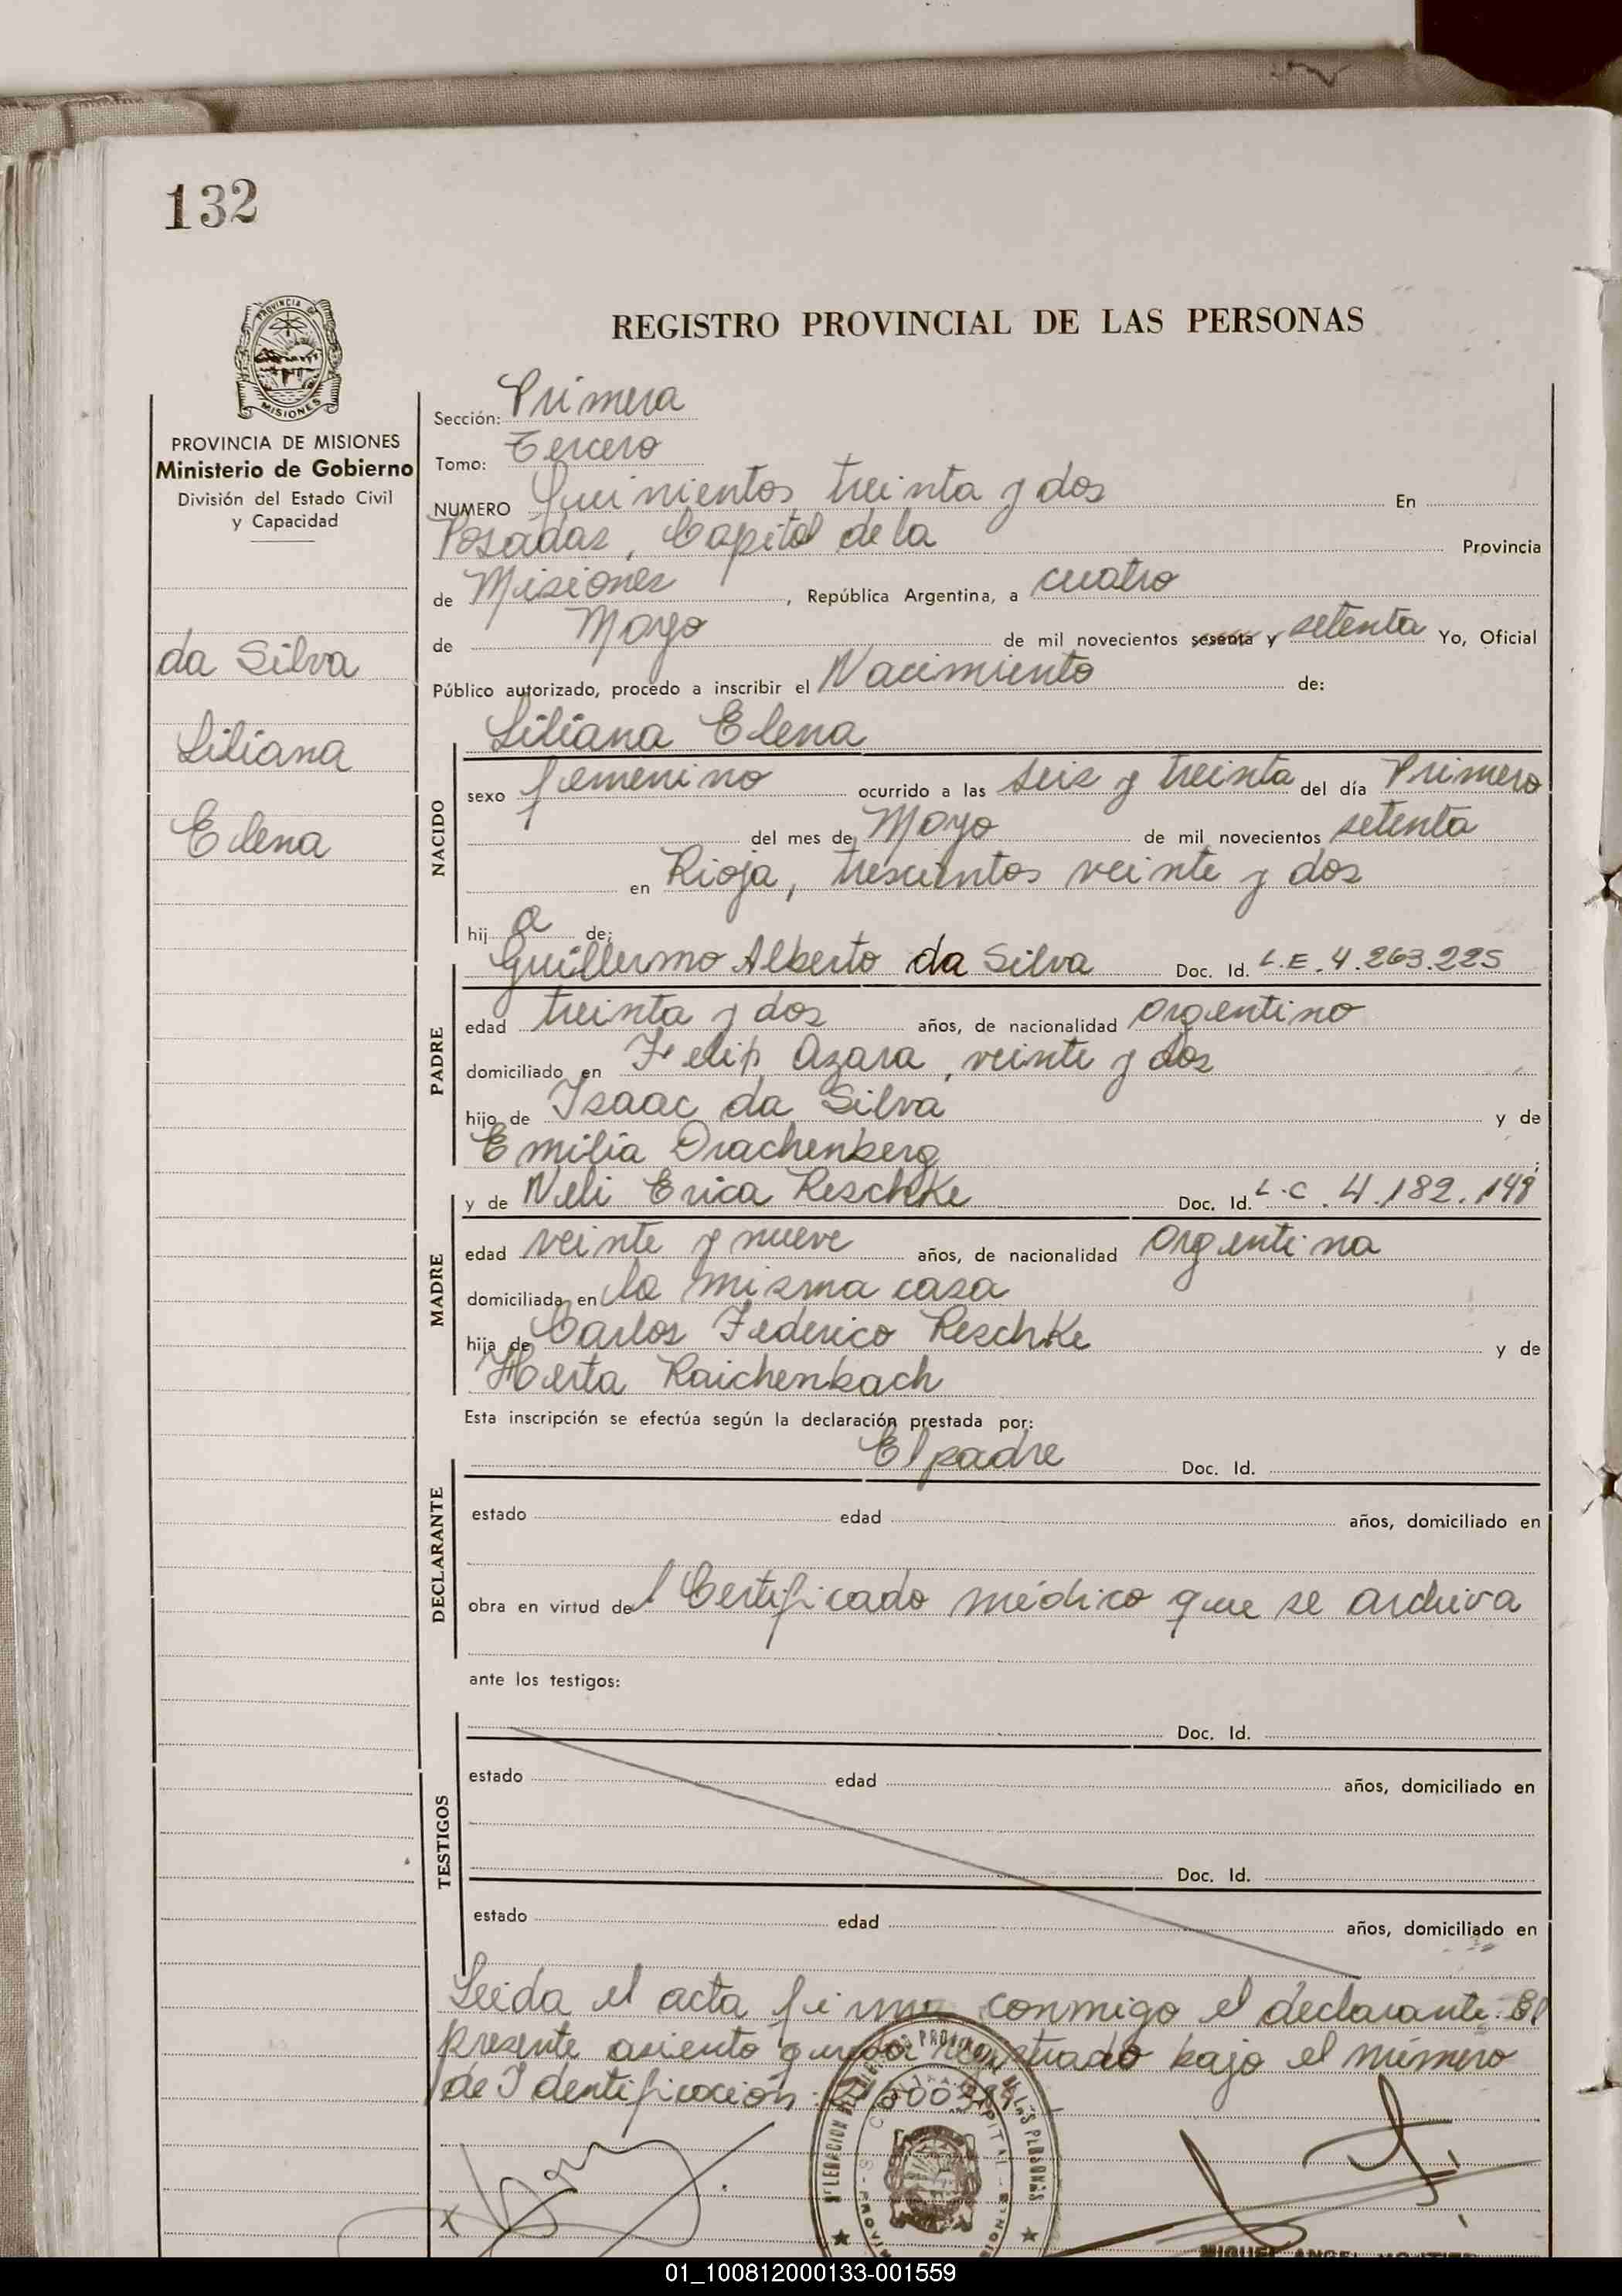 132
PROVINCIA DE
MISIONES
REGISTRO PROVINCIAL DE LAS PERSONAS
PROVINCIA DE MISIONES
Ministerio de Gobierno
División del Estado Civil
y Capacidad
da Silva
Liliana
Elena
Sección: Primera
Tomo: Tercero
NUMERO Quinientos treinta y dos En
Posadas, Capital de la Provincia
de Misiones, República Argentina, a cuatro
de Mayo de mil novecientos sesenta y setenta Yo, Oficial
Público autorizado, procedo a inscribir el Nacimiento de:
Liliana Elena
NACIDO
sexo femenino ocurrido a las seis y treinta del día Primero
del mes de Mayo de mil novecientos setenta
en Rioja, trescientos veinte y dos
hij a de;
PADRE
Guillermo Alberto da Silva Doc. Id. L.E. 4.263.225
edad treinta y dos años, de nacionalidad argentino
domiciliado en Felip Azara, veinte y dos
hijo de Isaac da Silva y de
Emilia Drachenberg;
MADRE
y de Neli Erica Reschke Doc. Id. L.C. 4.182.148
edad veinte y nueve años, de nacionalidad argentina
domiciliada en la misma casa
hija de Carlos Federico Reschke y de
Herta Raichenbach
Esta inscripción se efectúa según la declaración prestada por:
DECLARANTE
El padre Doc. Id.
estado edad años, domiciliado en
obra en virtud del Certificado médico que se archiva
ante los testigos:
TESTIGOS
Doc. Id.
estado edad años, domiciliado en
Doc. Id.
estado edad años, domiciliado en
Leida el acta firma conmigo el declarante. El
presente asiento queda registrado bajo el número
de Identificación:
MIGUEL ANGEL
01_100812000133-001559